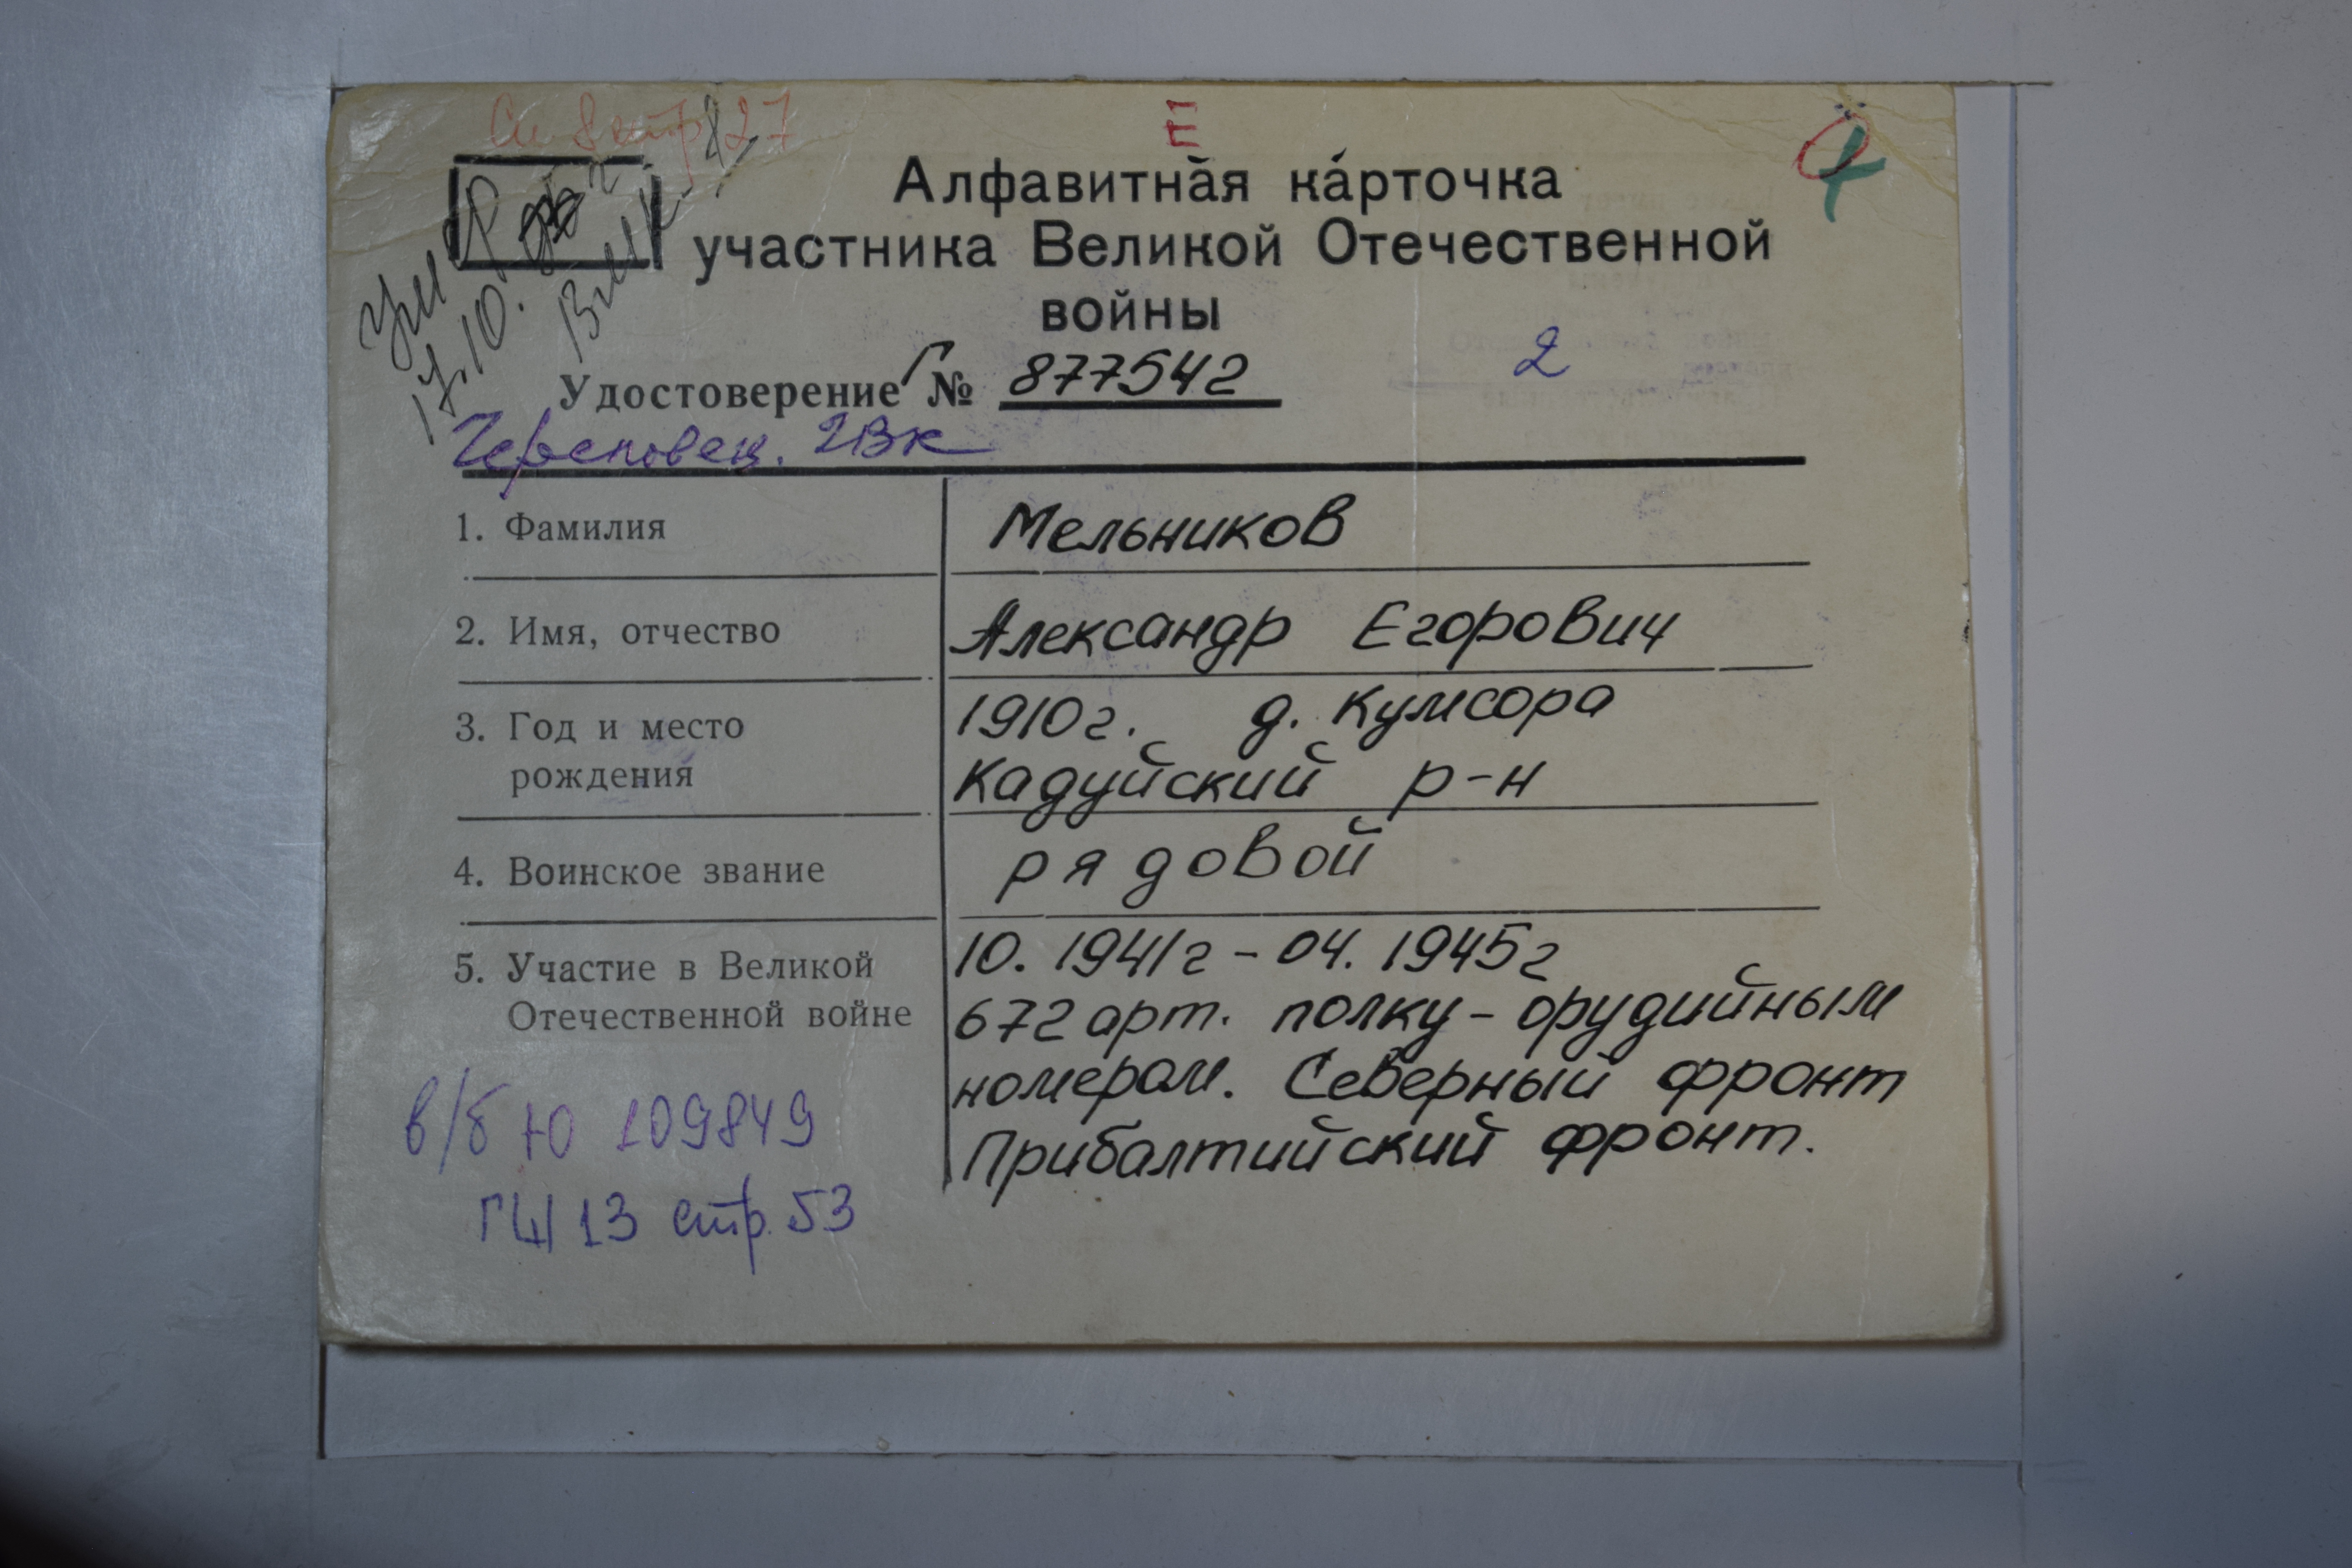 Е
Алфавитная карточка
участника Великой Отечественной
войны
Удостоверение Г № 877542
2
Череповец. ГВК
1. Фамилия Мельников
2. Имя, отчество Александр Егорович
3. Год и место 1910г. д. Кумсора
рождения Кадуйский р-н
4. Воинское звание рядовой
5. Участие в Великой 10. 1941г - 04. 1945г
Отечественной войне 672 арт. полку - орудийным
номером. Северный фронт
в/б Ю 109849 Прибалтийский фронт.
13 стр. 53